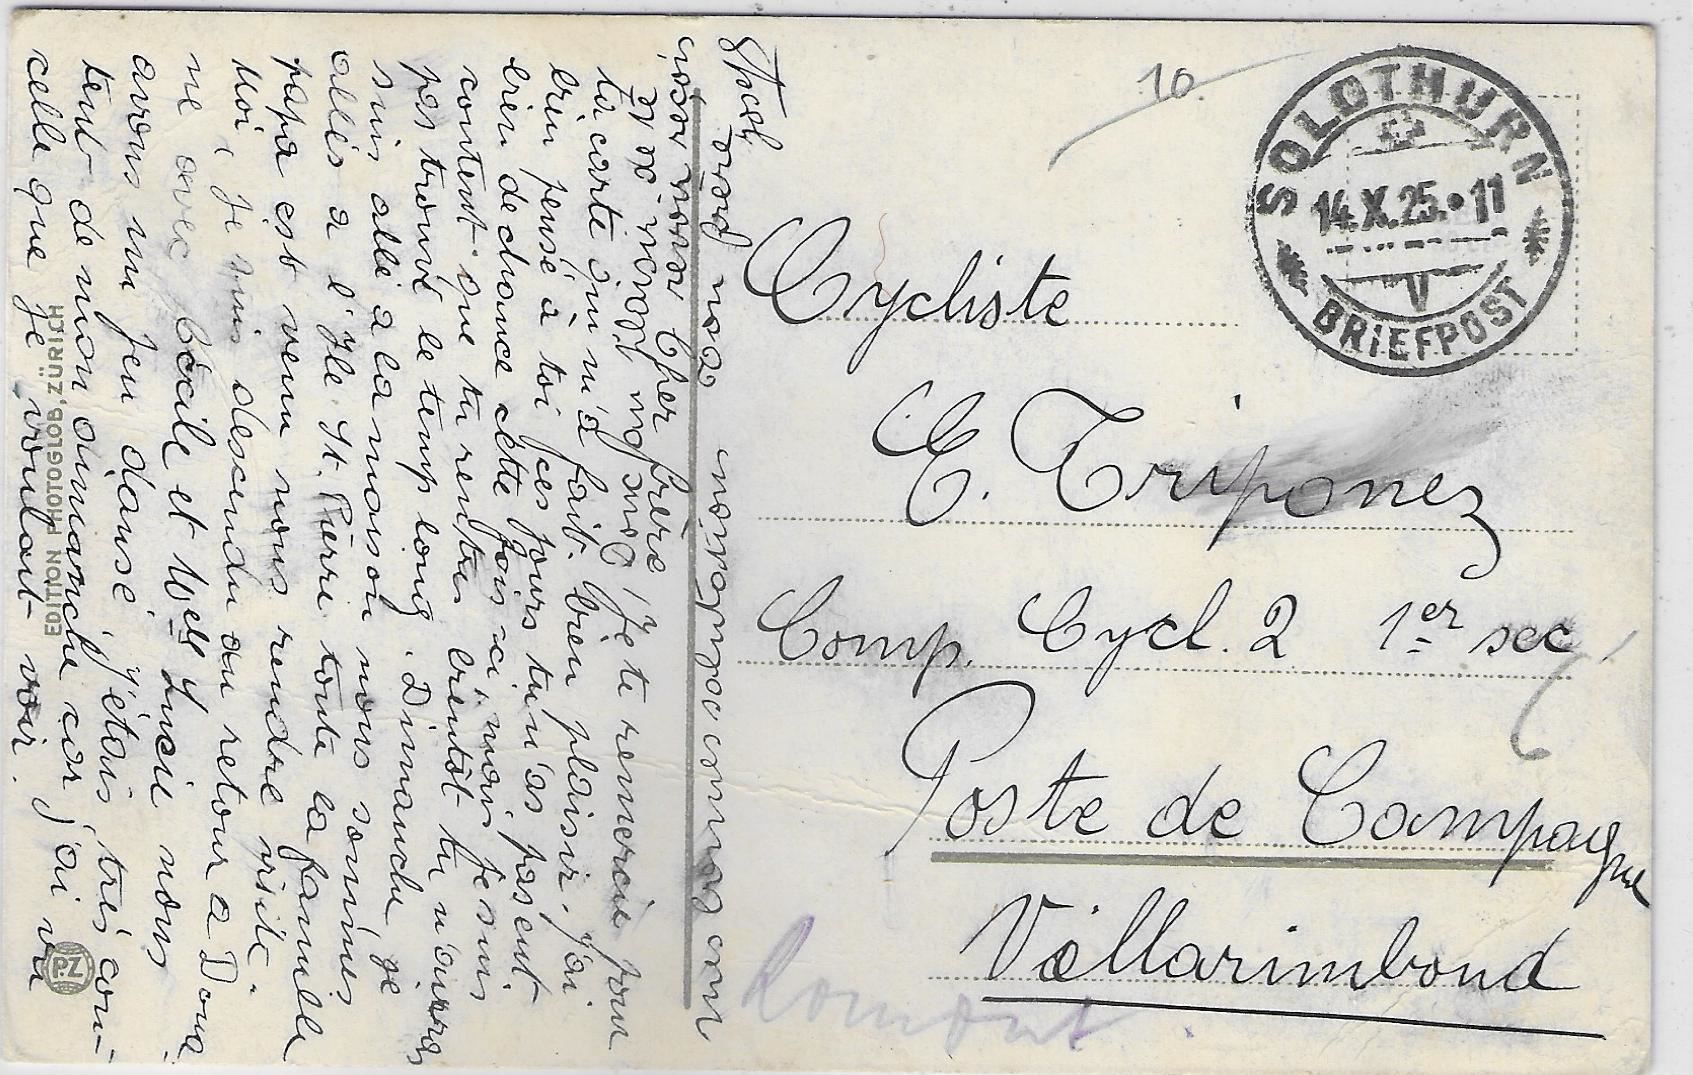 10.
SOLOTHURN
14.X.25.•11
V
BRIEFPOST
Cycliste
E. Triponez
Comp. Cycl. 2 1er sec.
Poste de Campagne
Vallarimboud
Romont
Cher frère
Je te remercie pour
ta carte qu m'a fait bien plaisir. j'ai
bien pensé à toi ces jours tu n'as pas eut
bien de chance cette fois-ci, mais je suis
content que tu rentres bientôt tu n'auras
pas trouvé le temp long. Dimanche je
suis allé a la maison nous sommes
allés a l'Ile St. Pierre toute la famille
papa est venu nous rendre visite.
Moi, je suis descendu au retour a Doua
ne avec Cécile et Mell Lucie nous
avons un peu dansé j'étais très con-
tent de mon dimanche car j'ai vu
celle que je voulait voir.
EDITION PHOTOGLOB, ZÜRICH
P.Z